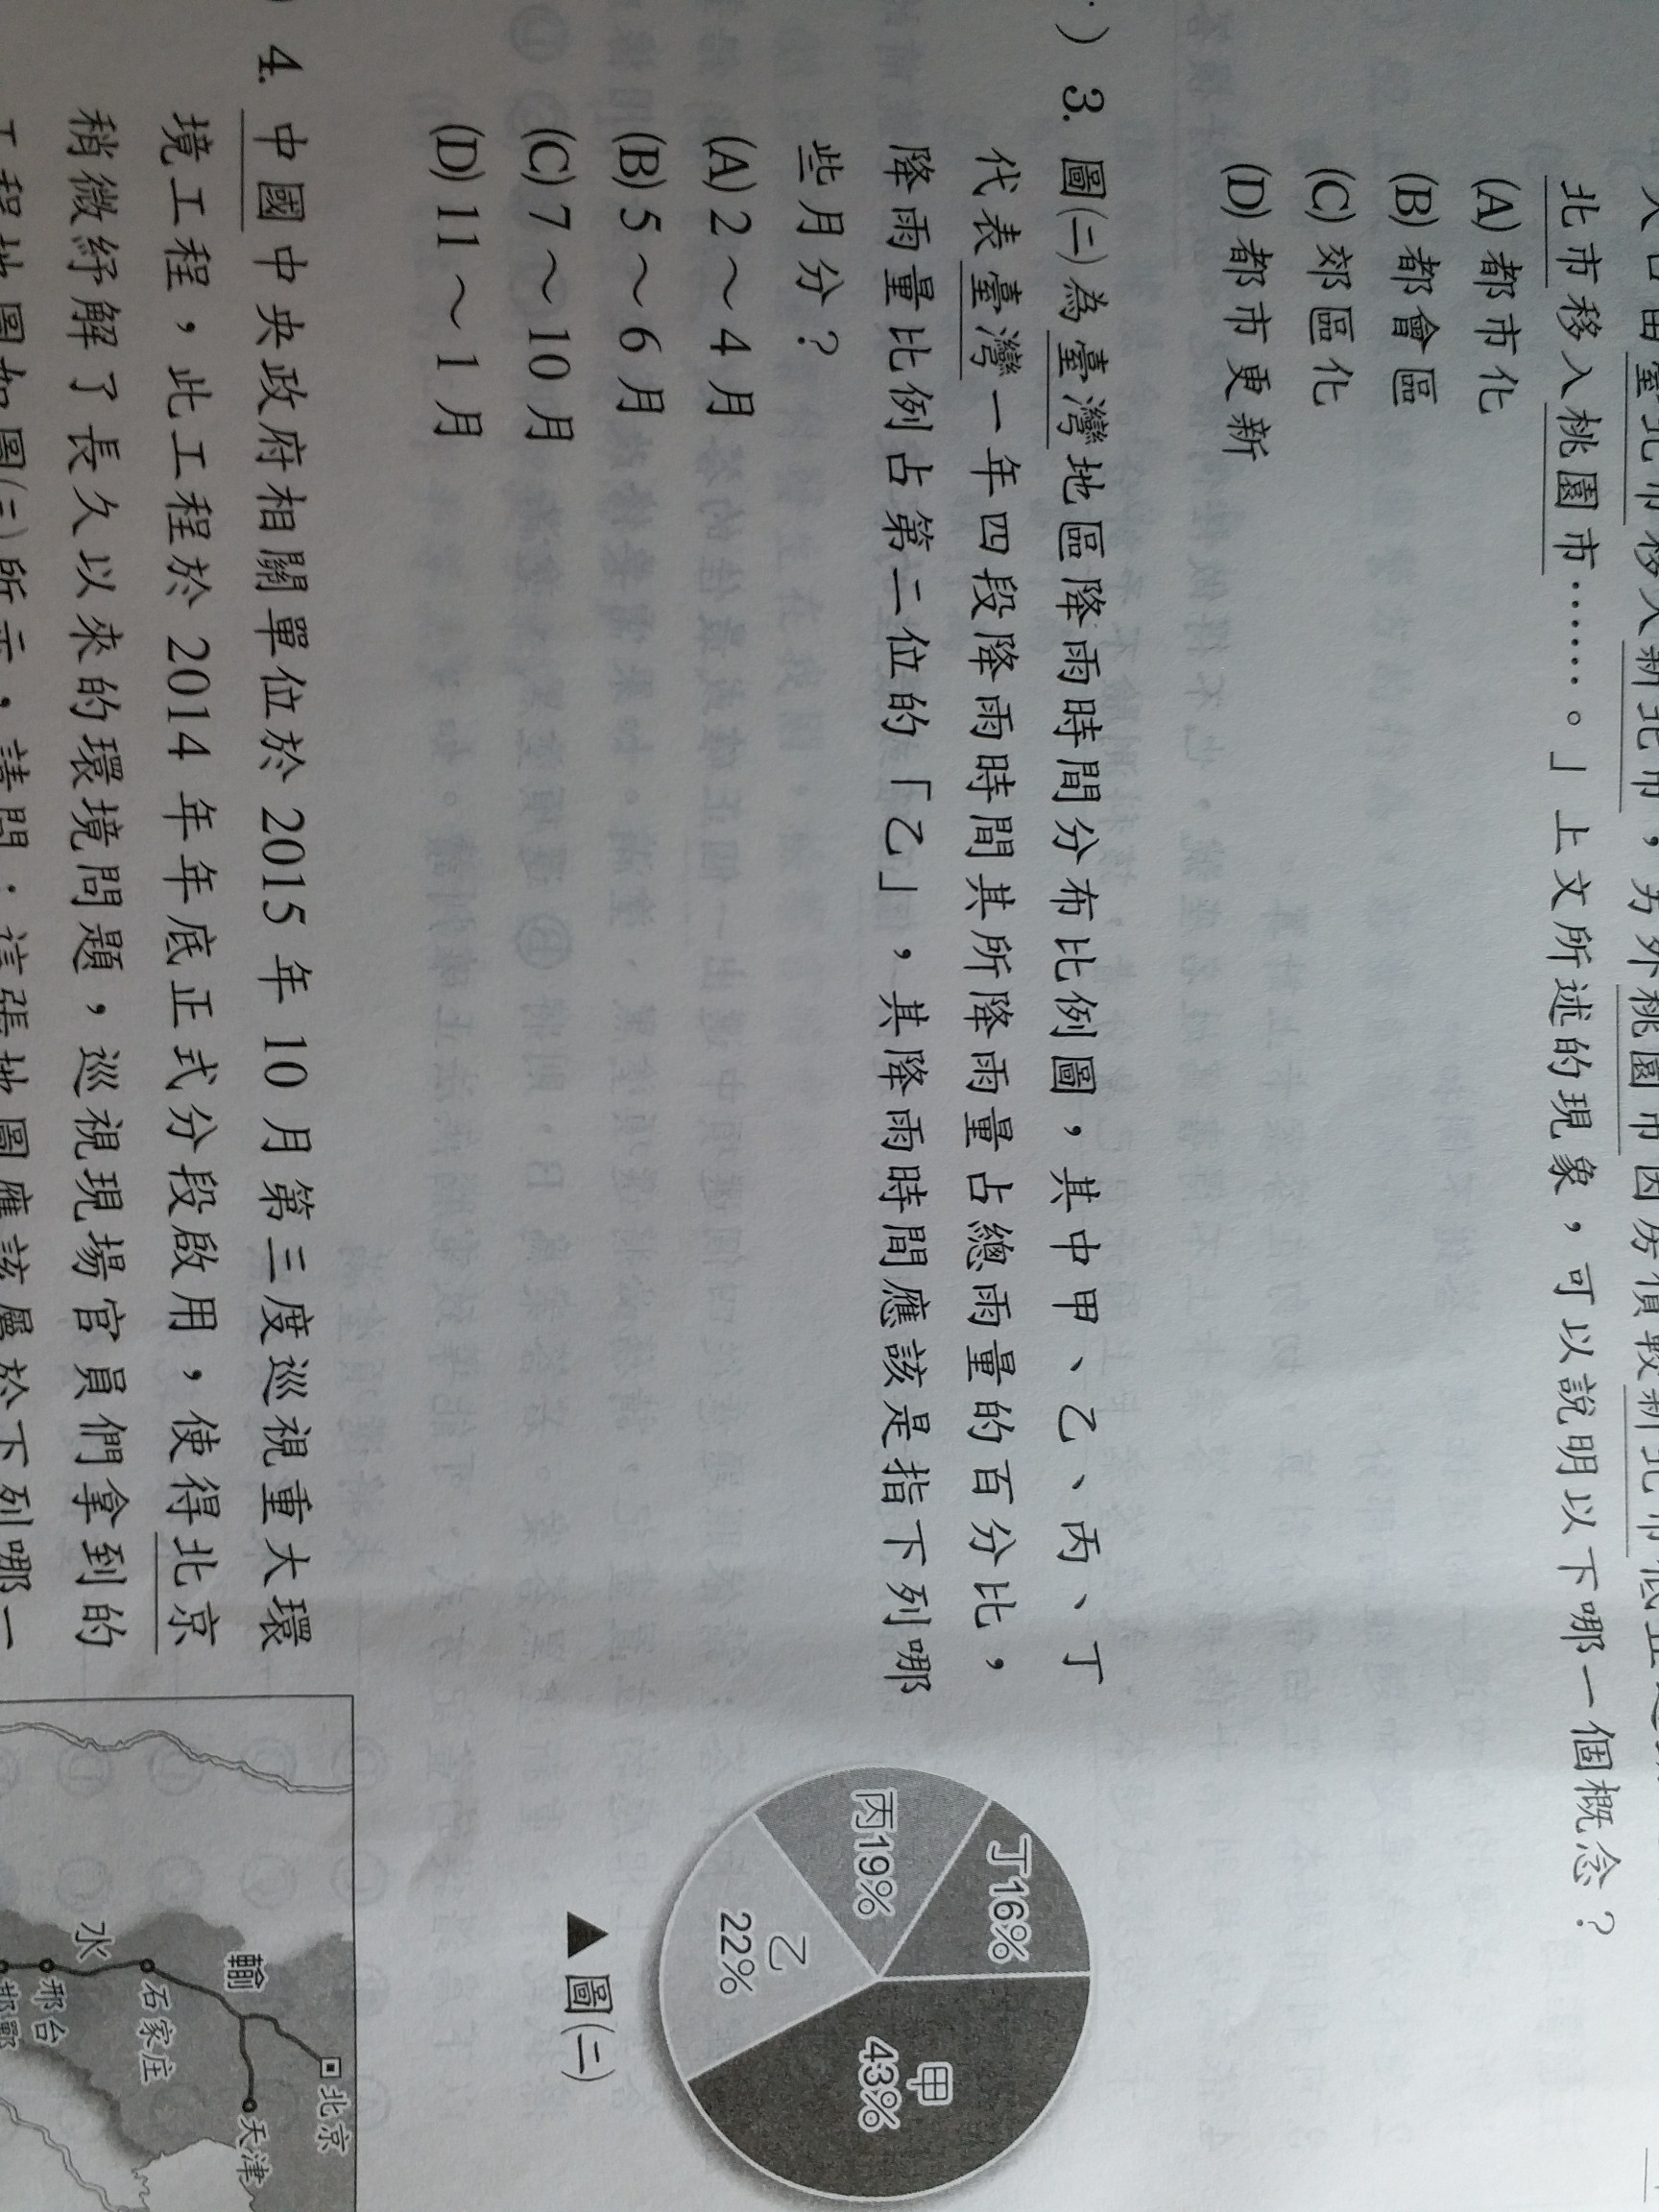 北市移入桃園市⋯⋯。」上文所述的現象，可以說明以下哪一個概念？
(A)都市化
(B)都會區
(C)郊區化
(D)都市更新
) 3. 圖(二)為臺灣地區降雨時間分布比例圖，其中甲、乙、丙、丁
代表臺灣一年四段降雨時間其所降雨量占總雨量的百分比，
降雨量比例占第二位的「乙」，其降雨時間應該是指下列哪
些月分？
(A) 2～4月
(B) 5～6月
(C) 7～10月
(D) 11～1月
丁16%
丙19%
甲
43%
乙
22%
▲ 圖(二)
4. 中國中央政府相關單位於 2015 年 10 月第三度巡視重大環
境工程，此工程於 2014 年年底正式分段啟用，使得北京
稍微紓解了長久以來的環境問題，巡視現場官員們拿到的
工程地圖如圖(三)所示，請問：這張地圖應該屬於下列哪一
北京
天津
輸
石家庄
水
邢台
邯鄲